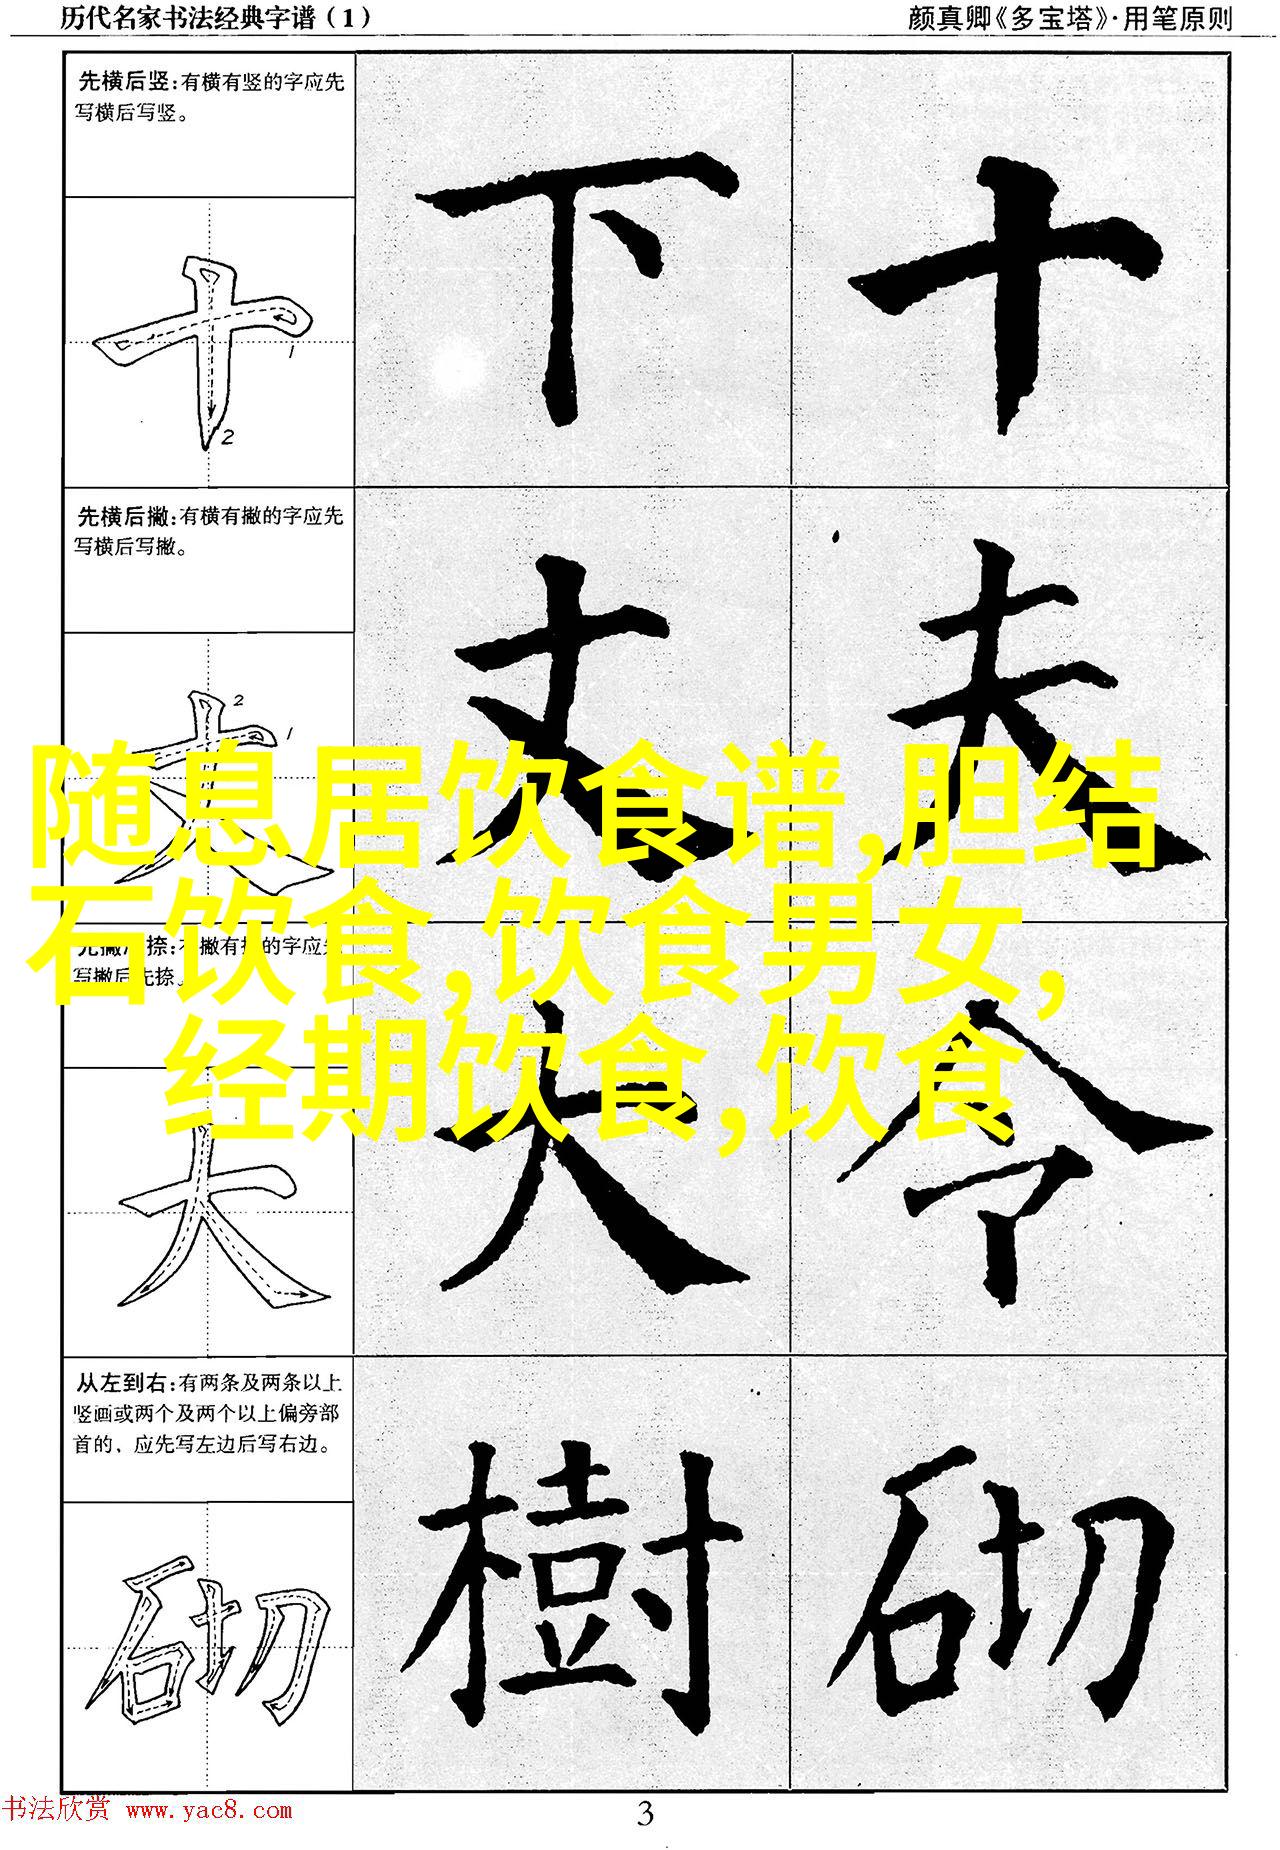 历代名家书法经典字谱（1）
颜真卿《多宝塔》·用笔原则
先横后竖：有横有竖的字应先
写横后写竖。
1
2
下 十
先横后撇：有横有撇的字应先
写横后写撇。
2
1
丈 夫
随息居饮食谱,胆结
石饮食,饮食男女,
经期饮食,饮食
先撇后捺：有撇有捺的字应先
写撇后先捺。
大 令
从左到右：有两条及两条以上
竖画或两个及两个以上偏旁部
首的，应先写左边后写右边。
樹 砌
书法欣赏 www.yac8.com
3